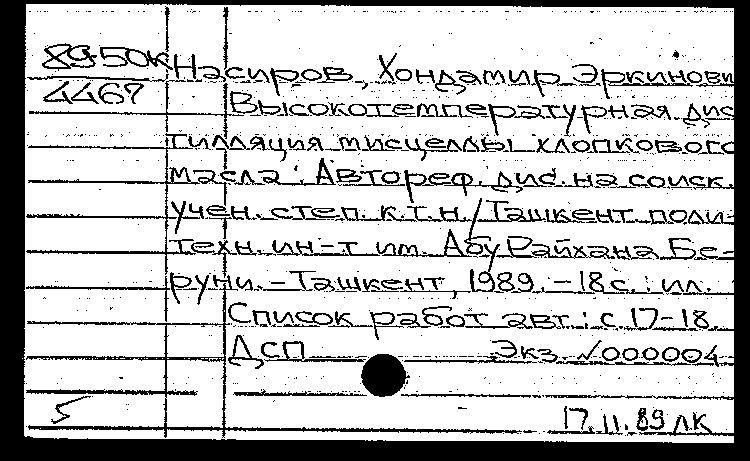 89-50К
4467
Насиров, Хондамир Эркинови
Высокотемпературная дис
тилляция мисцеллы хлопкового
масла : Автореф. дис. на соиск.
учен. степ. к.т.н./Ташкент поли-
техн. ин-т им. Абу Райхана Бе-
руни. - Ташкент, 1989. - 18 с. : ил.
Список работ авт.: с 17-18.
ДСП Экз. √000004
5 17.11.89 ЛК